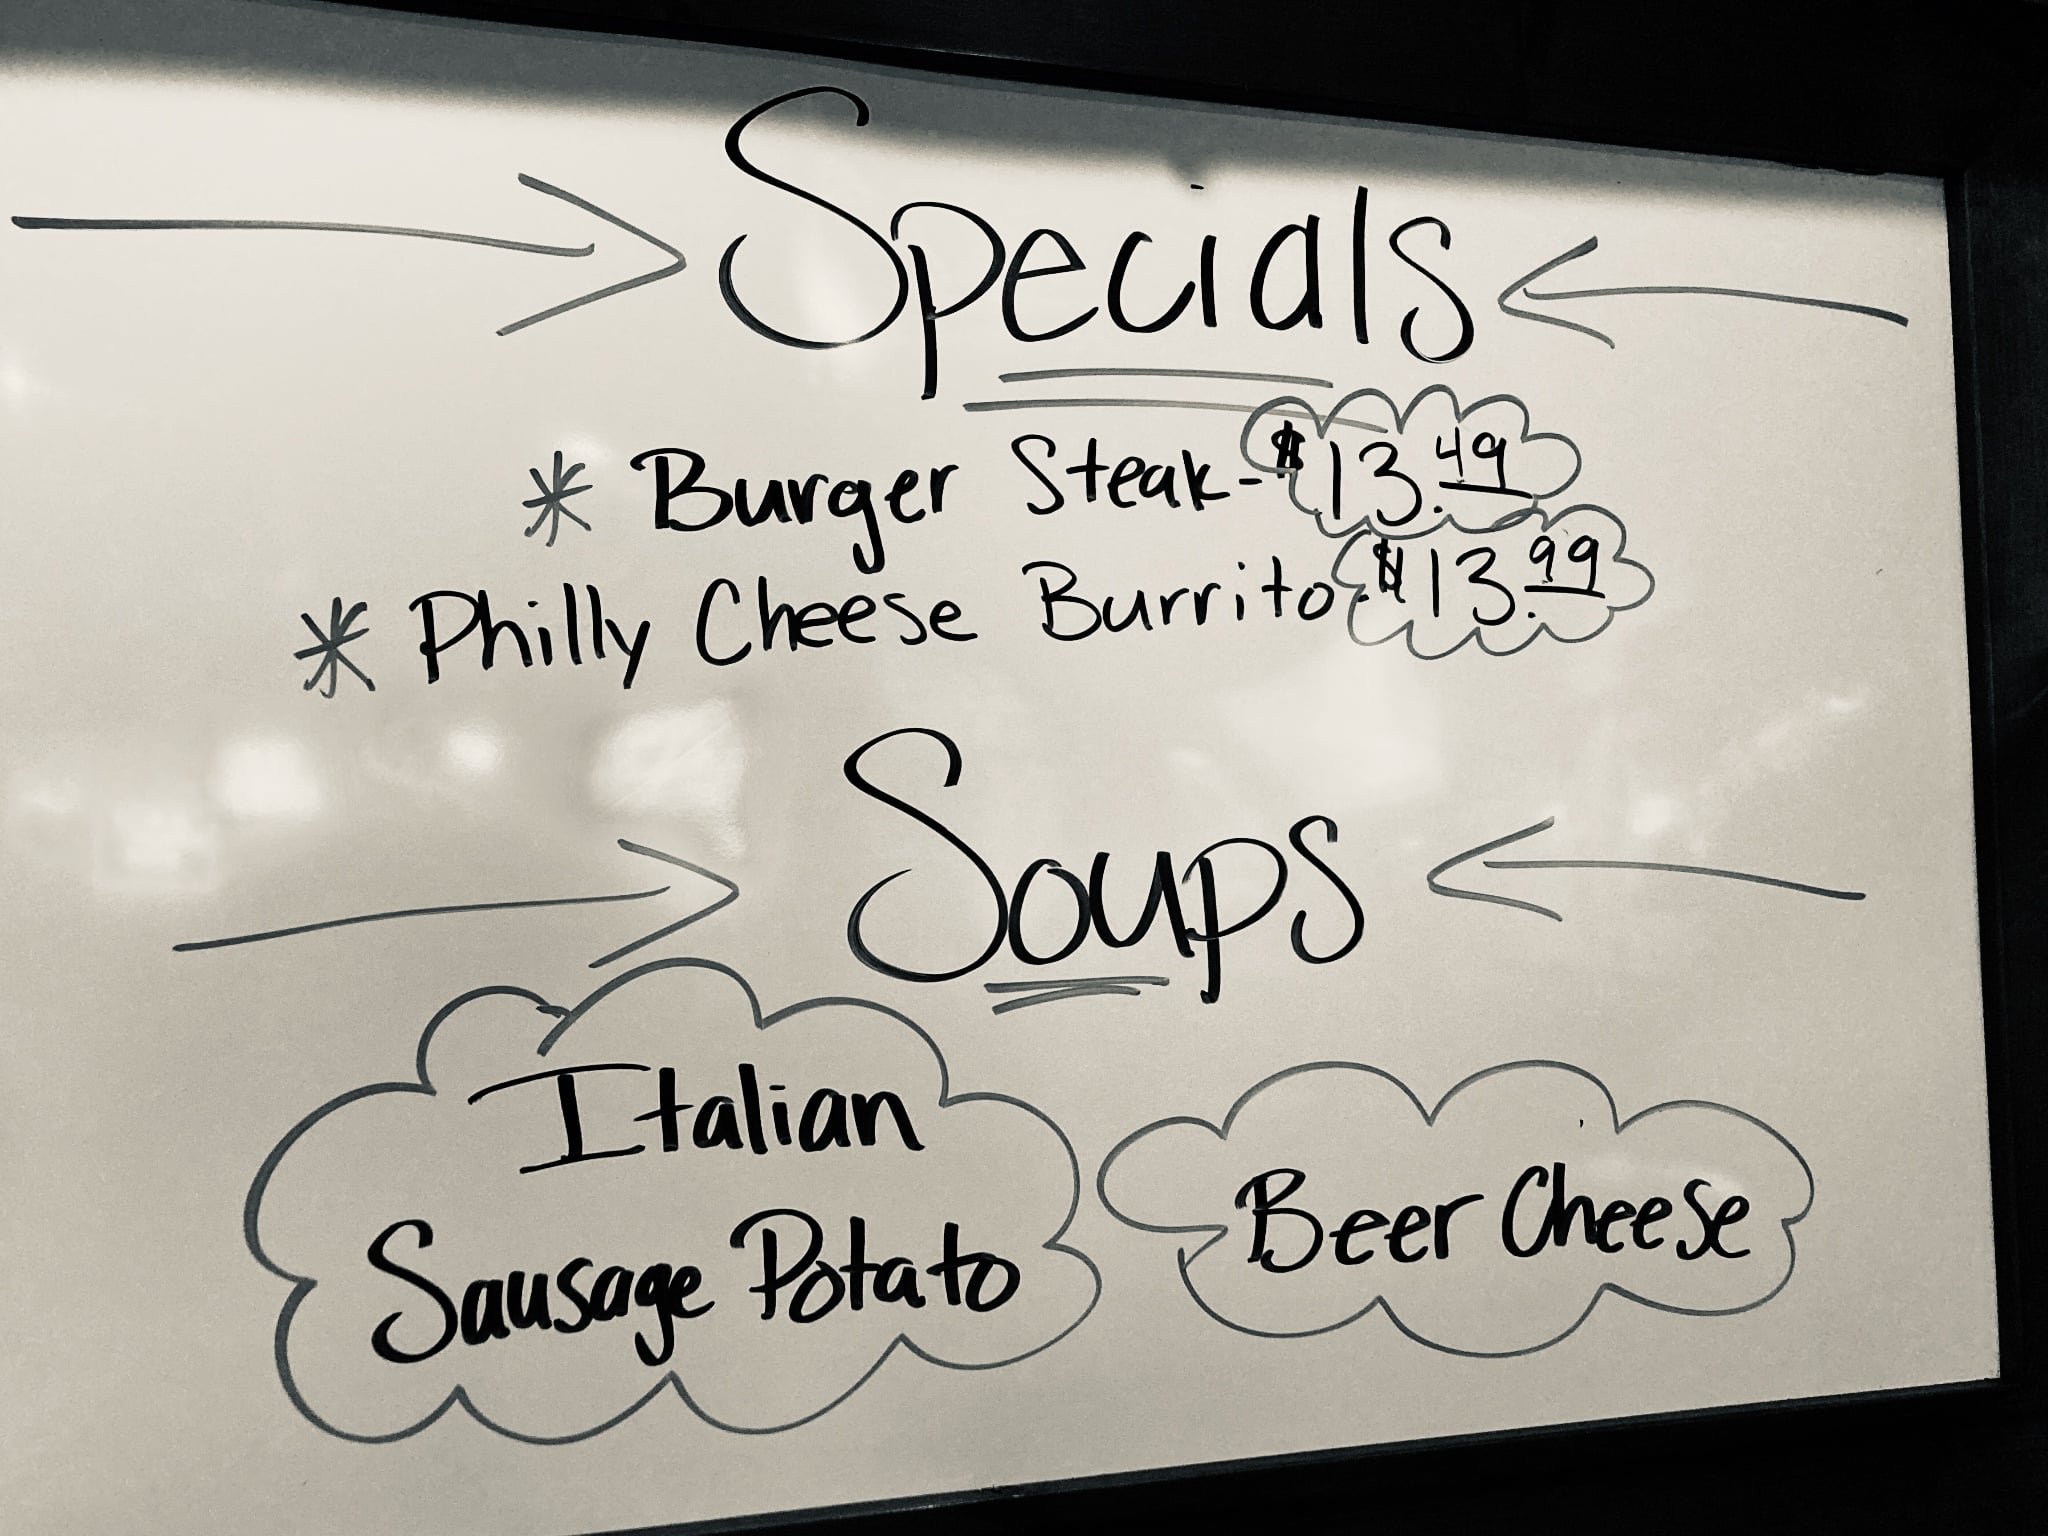 Specials
* Burger Steak - $13.49
* Philly Cheese Burrito - $13.99
Soups
Italian
Sausage Potato
Beer Cheese